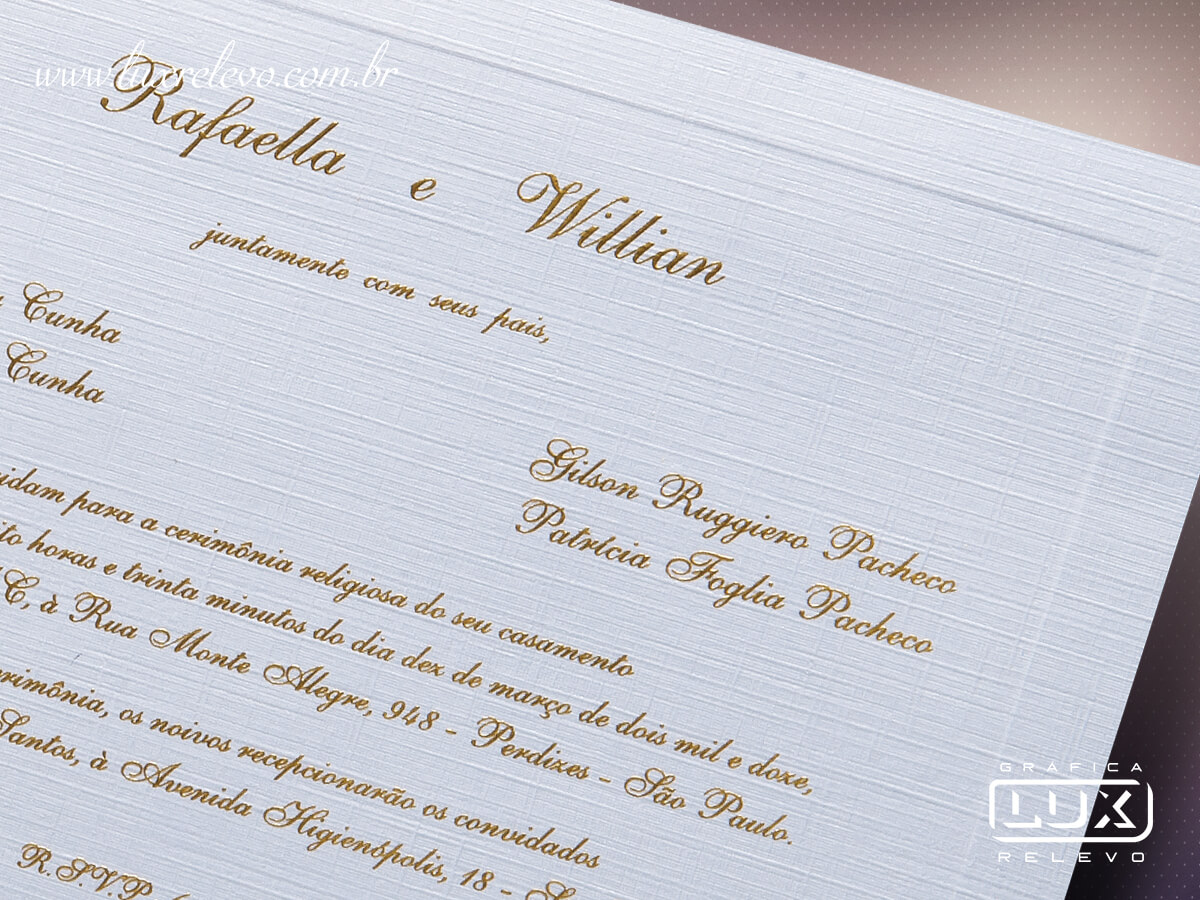 www.luxrelevo.com.br
Rafaella e Willian
juntamente com seus pais,
Cunha
Cunha
Gilson Ruggiero Pacheco
Patrícia Foglia Pacheco
para a cerimônia religiosa do seu casamento
horas e trinta minutos do dia dez de março de dois mil e doze,
à Rua Monte Alegre, 948 - Perdizes - São Paulo.
os noivos recepcionarão os convidados
Santos, à Avenida Higienópolis, 18 -
R.S.V.P
GRÁFICA
LUX
RELEVO